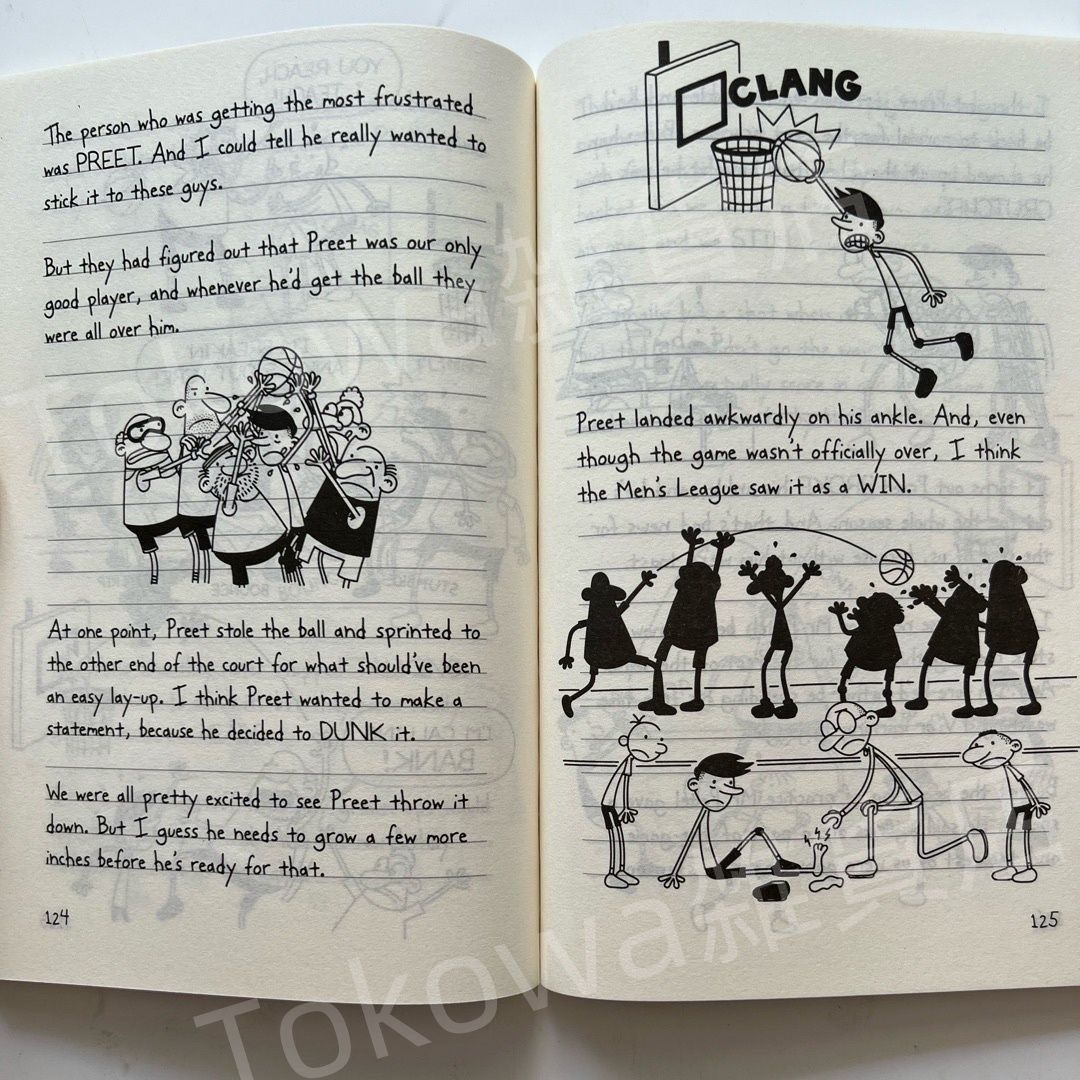 The person who was getting the most frustrated
was PREET. And I could tell he really wanted to
stick it to these guys.
But they had figured out that Preet was our only
good player, and whenever he'd get the ball they
were all over him.
At one point, Preet stole the ball and sprinted to
the other end of the court for what should've been
an easy lay-up. I think Preet wanted to make a
statement, because he decided to DUNK it.
We were all pretty excited to see Preet throw it
down. But I guess he needs to grow a few more
inches before he's ready for that.
124
CLANG
Preet landed awkwardly on his ankle. And, even
though the game wasn't officially over, I think
the Men's League saw it as a WIN.
125
Tokowa